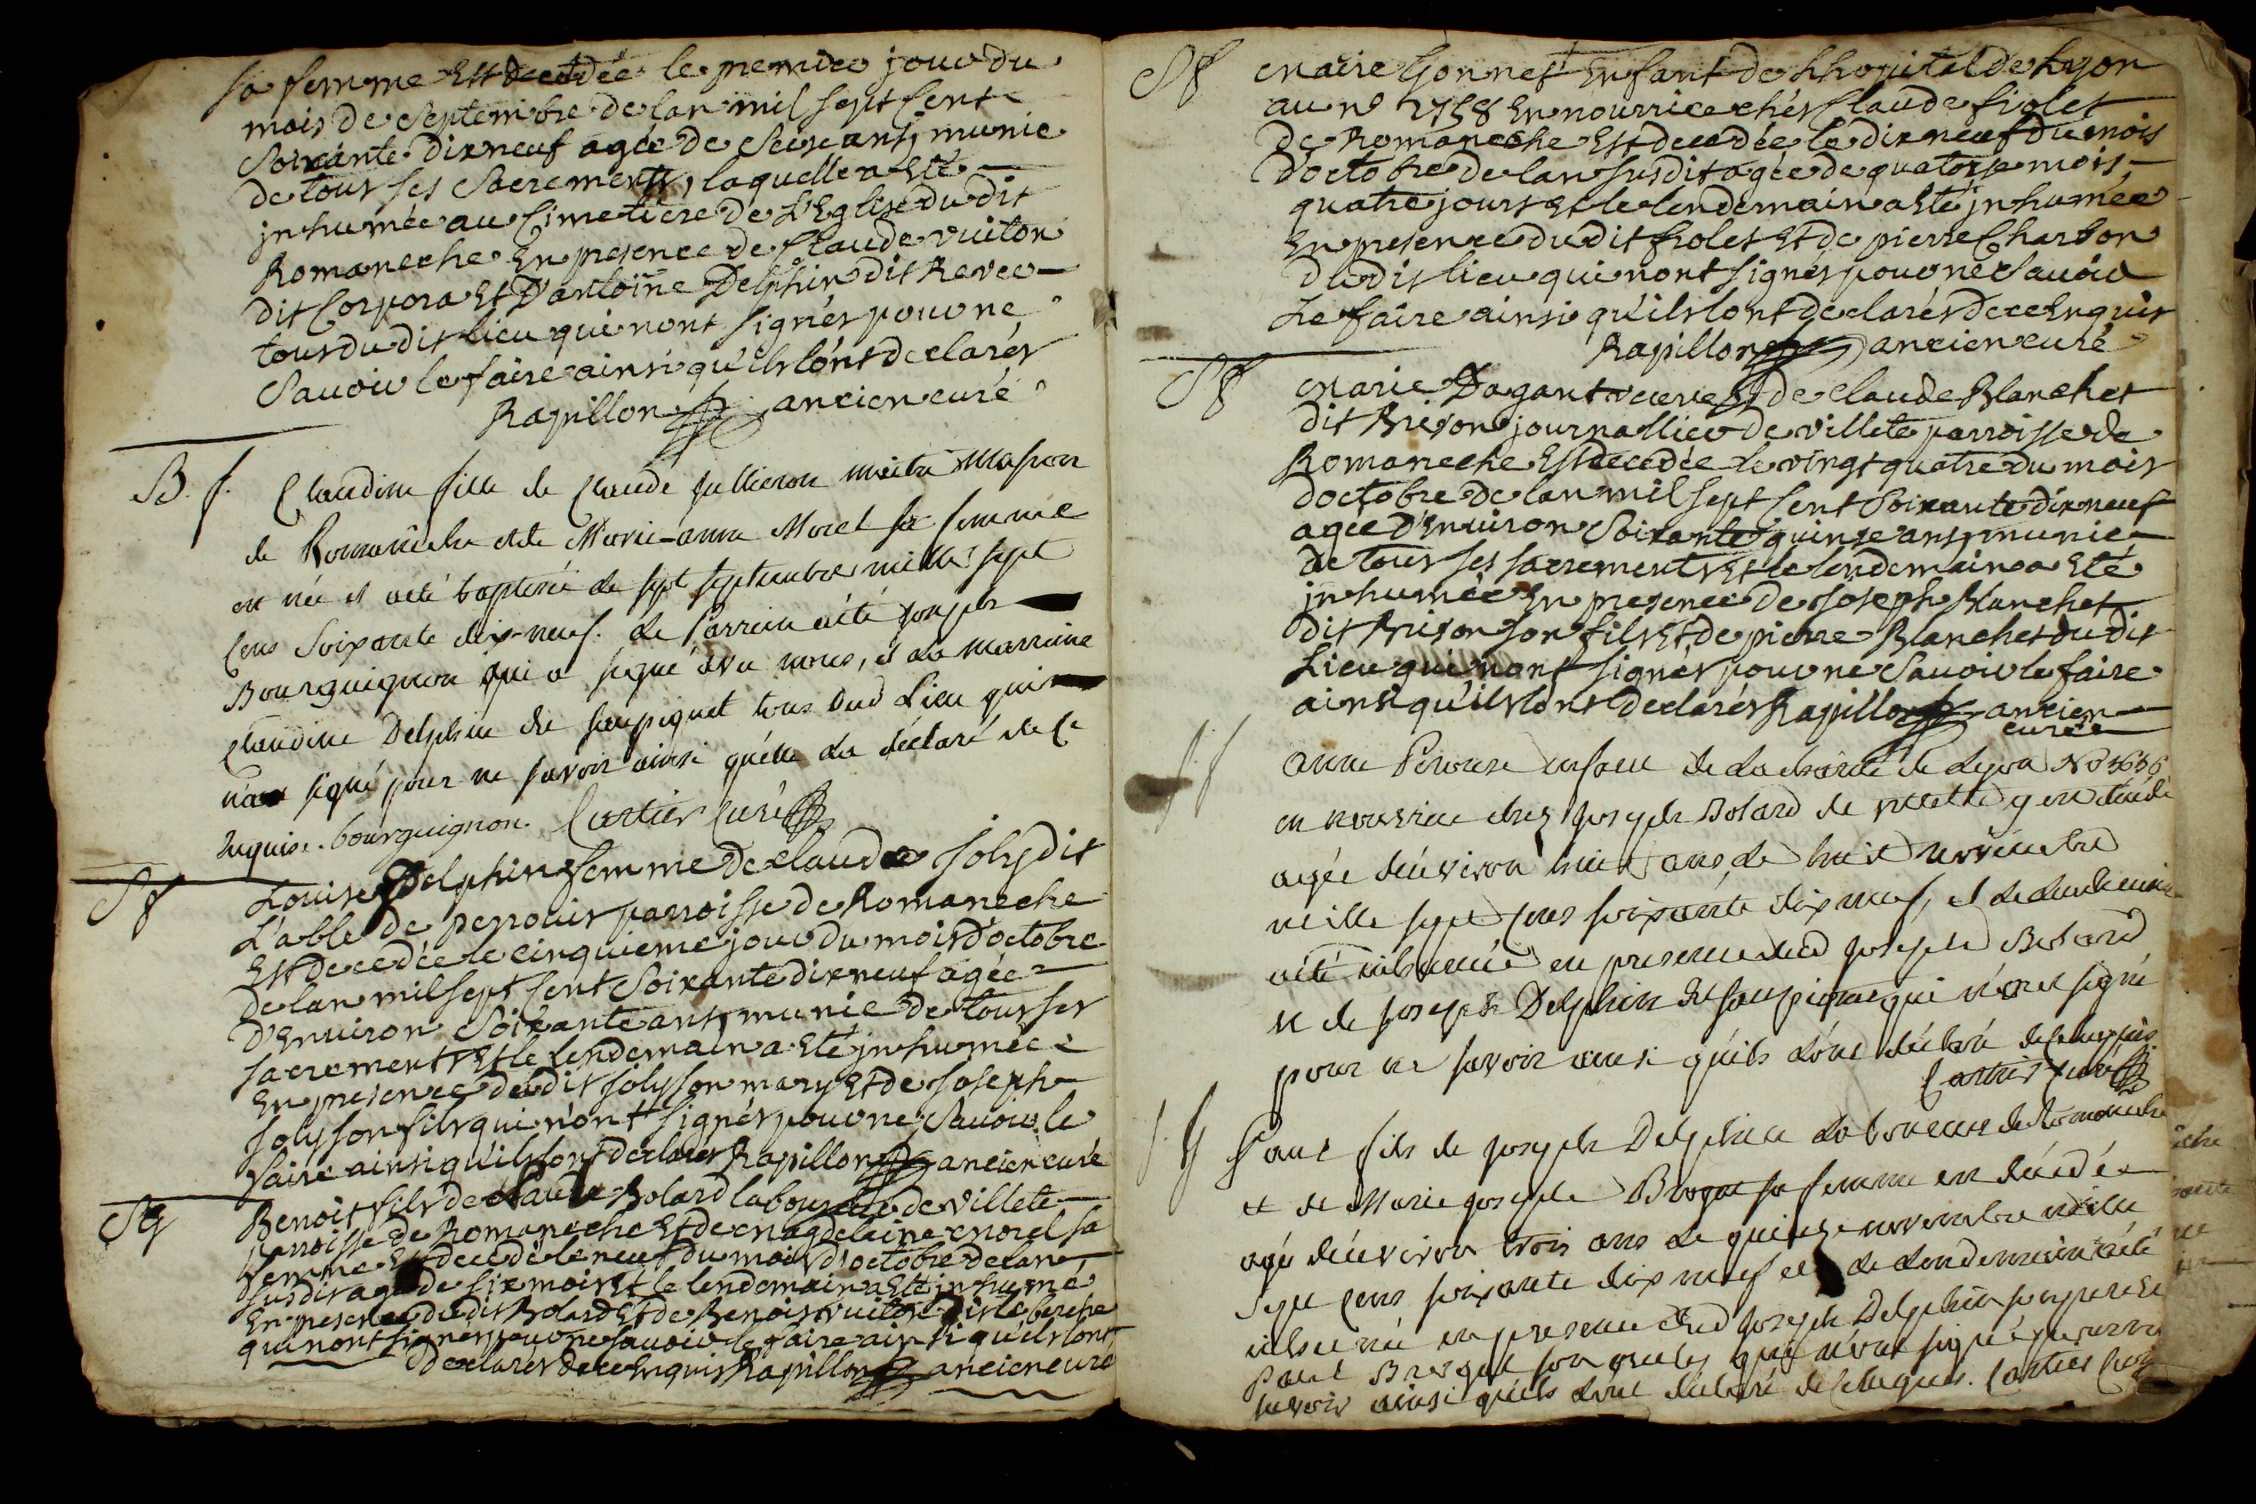 sa femme Est decedée le premier jour du
mois de Septembre de lan mil sept Cent
Soixante dix neuf agée de Seise ans munie
de tous ses Sacrements, laquelle a Eté
jnhumée au Cimetiere de L'Eglise du dit
Romaneche En presence de Claude vuiton
dit Corpora Et D'antoine Delphin dit Revee
tous du dit lieu qui nont signés pour ne
Savoir le faire ainsi qu'ils lont declarés
Rapillon ancien curé
B. f. Claudine fille de Claude Jullieron maitre Masson
de Romaneche et de Marie-anne Morel sa femme
est née et a été baptisée le sept septembre mille sept
Cens Soixante dix-neuf. le Parrein a été joseph
Bourguignon qui a signé avec nous, et la Marreine
Claudine Delphin dit saupiquet tous dud Lieu qui
n'a signé pour ne savoir ainsi qu'elle la déclaré de Ce
Enquise. bourguignon. Cartier Curé
Sf Louise Delphin femme de Claude Joly dit
L'able de perouis parroisse de Romaneche
Est decedée le cinquieme jour du mois d'octobre
de lan mil sept Cent Soixante dix neuf agée
D'Environ Soixante ans munie de tous ses
sacrements Et le lendemain a Eté jnhumée
En presence du dit Joly son mary Et de Joseph
Joly son fils qui n'ont signés pour ne Savoir le
faire ainsi qu'ils l'ont declarés Rapillon ancien curé
Sg Benoit fils de Claude Bolard laboureur de villete
parroisse de Romaneche Et de magdelaine morel sa
femme Est decedé le neuf du mois d'octobre de lan
susdit agé de six mois Et le lendemain a Eté jnhumé
En presence du dit Bolard Et de Benoist vuiton dit
qui nont signés pour ne Savoir le faire ainsi qu'ils lont
declarés de ce Enquis Rapillon ancien curé
Sf marie Gonnet Enfant de L'hopital de Lyon
au n° 2758 En nourrice chés Claude fiolet
de Romaneche Est decedée le dix neuf du mois
d'octobre de lan susdit agée de quatorse mois
quatre jours Et le lendemain a Eté jnhumée
En presence du dit fiolet Et de pierre Charbon
du dit lieu qui nont signés pour ne Savoir
Le faire ainsi qu'ils lont declarés de ce Enquis
Rapillon ancien curé
Sf marie Dagant veuve de Claude Blanchet
dit Brison journallier de villete parroisse de
Romaneche Est decedée le vingt quatre du mois
doctobre de lan mil sept Cent Soixante dix neuf
agée D'Environ Soixante quinse ans munie
de tous ses sacrements Et le lendemain a Eté
jnhumée En presence de Joseph Blanchet
dit Brison son fils Et de pierre Blanchet du dit
Lieu qui nont signés pour ne Savoir le faire
ainsi qu'ils lont declarés Rapillon ancien
curé
S. f anne Perouse enfant de la charité de Lyon N° 3636
en nourrice chez Joseph Bolard de villette y est decedé
agée d'environ huit ans, le huit novembre
mille sept cens soixante dix neuf, et le lendemain
a été inhumée en presence dud joseph Bolard
et de joseph Delphin dit saupiquet qui n'ont signé
pour ne savoir ainsi qu'ils l'ont déclaré de ce Enquis.
Cartier Curé
S. g Paul fils de joseph Delphin laboureur de Romaneche
et de Marie josephe Brogat sa femme est decedé
agé d'environ trois ans le quinze novembre mille
sept cens soixante dix neuf et le lendemain a été
inhumé en presence dud joseph Delphin son pere Et
Paul Brogat son oncle, qui n'ont signé pour ne
savoir ainsi qu'ils l'ont déclaré de Ce Enquis. Cartier Curé